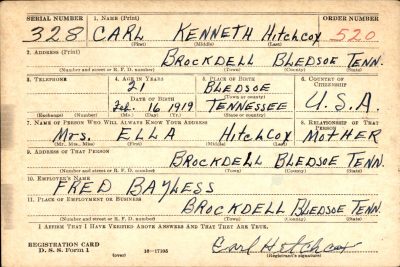 SERIAL NUMBER 1. NAME (Print) ORDER NUMBER
328 CARL KENNETH Hitchcox 520
(First) (Middle) (Last)
2. ADDRESS (Print)
BROCKDELL BLEDSOE TENN.
(Number and street or R. F. D. number) (Town) (County) (State)
3. TELEPHONE 4. AGE IN YEARS 5. PLACE OF BIRTH 6. COUNTRY OF CITIZENSHIP
21 BLEDSOE
DATE OF BIRTH (Town or county)
16 1919 TENNESSEE U.S.A.
(Exchange) (Number) (Mo.) (Day) (Yr.) (State or country)
7. NAME OF PERSON WHO WILL ALWAYS KNOW YOUR ADDRESS 8. RELATIONSHIP OF THAT PERSON
Mrs. ELLA HitchCox MOTHER
(Mr., Mrs., Miss) (First) (Middle) (Last)
9. ADDRESS OF THAT PERSON
BROCKDELL BLEDSOE TENN.
(Number and street or R. F. D. number) (Town) (County) (State)
10. EMPLOYER'S NAME
FRED BAYLESS
11. PLACE OF EMPLOYMENT OR BUSINESS
BROCKDELL BLEDSOE TENN.
(Number and street or R. F. D. number) (Town) (County) (State)
I AFFIRM THAT I HAVE VERIFIED ABOVE ANSWERS AND THAT THEY ARE TRUE.
REGISTRATION CARD
D. S. S. Form 1 (over) 16—17105 Carl Hitchcox
(Registrant's signature)